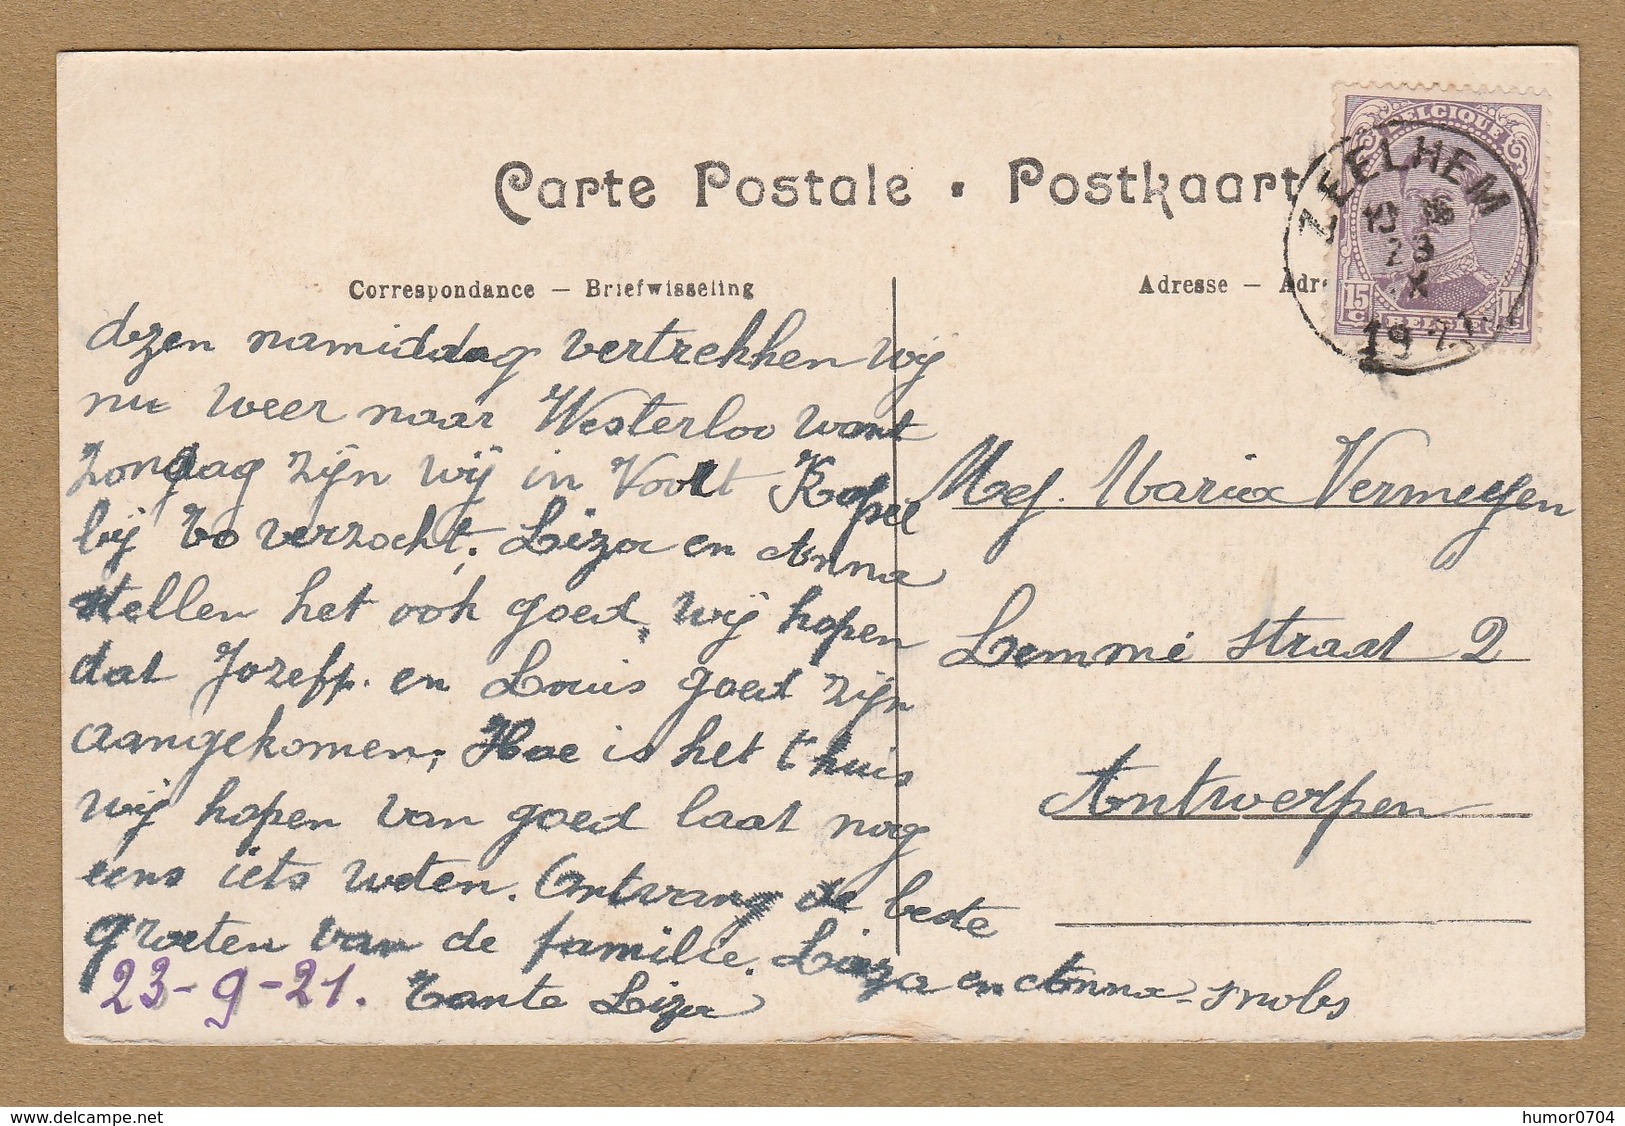 Carte Postale • Postkaart
Correspondance — Briefwisseling
Adresse — Adr
BELGIQUE
15 c
15
BELGIË
ZEELHEM
23
IX
1921
dezen namiddag vertrekken wij
nu weer naar Westerloo want
zondag zijn wij in Voort Kapel
bij Vo verzocht. Liza en Anna
stellen het ook goed, wij hopen
dat Jozeff. en Louis goed zijn
aangekomen; Hoe is het t'huis
wij hopen van goed laat nog
eens iets weten. Ontvang de beste
groeten van de familie. Liza en Anna
23-9-21. Tante Liza
Mej. Maria Vermeyen
Lemmé straat 2
Antwerpen
www.delcampe.net
humor0704